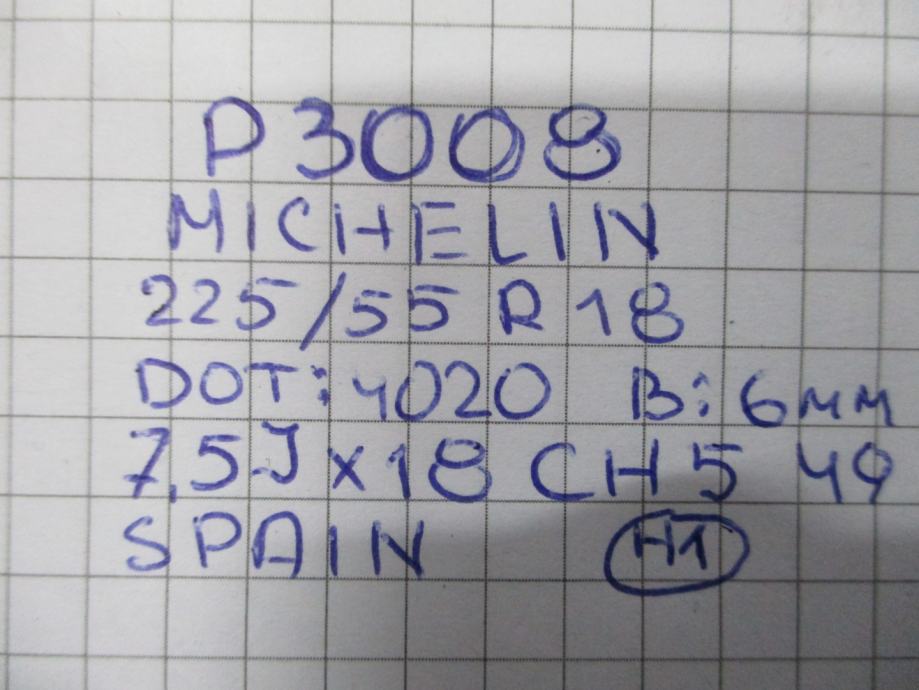 P3008
MICHELIN
225/55 R 18
DOT: 4020 B: 6мм
7,5J x 18 CH5 49
SPAIN H1